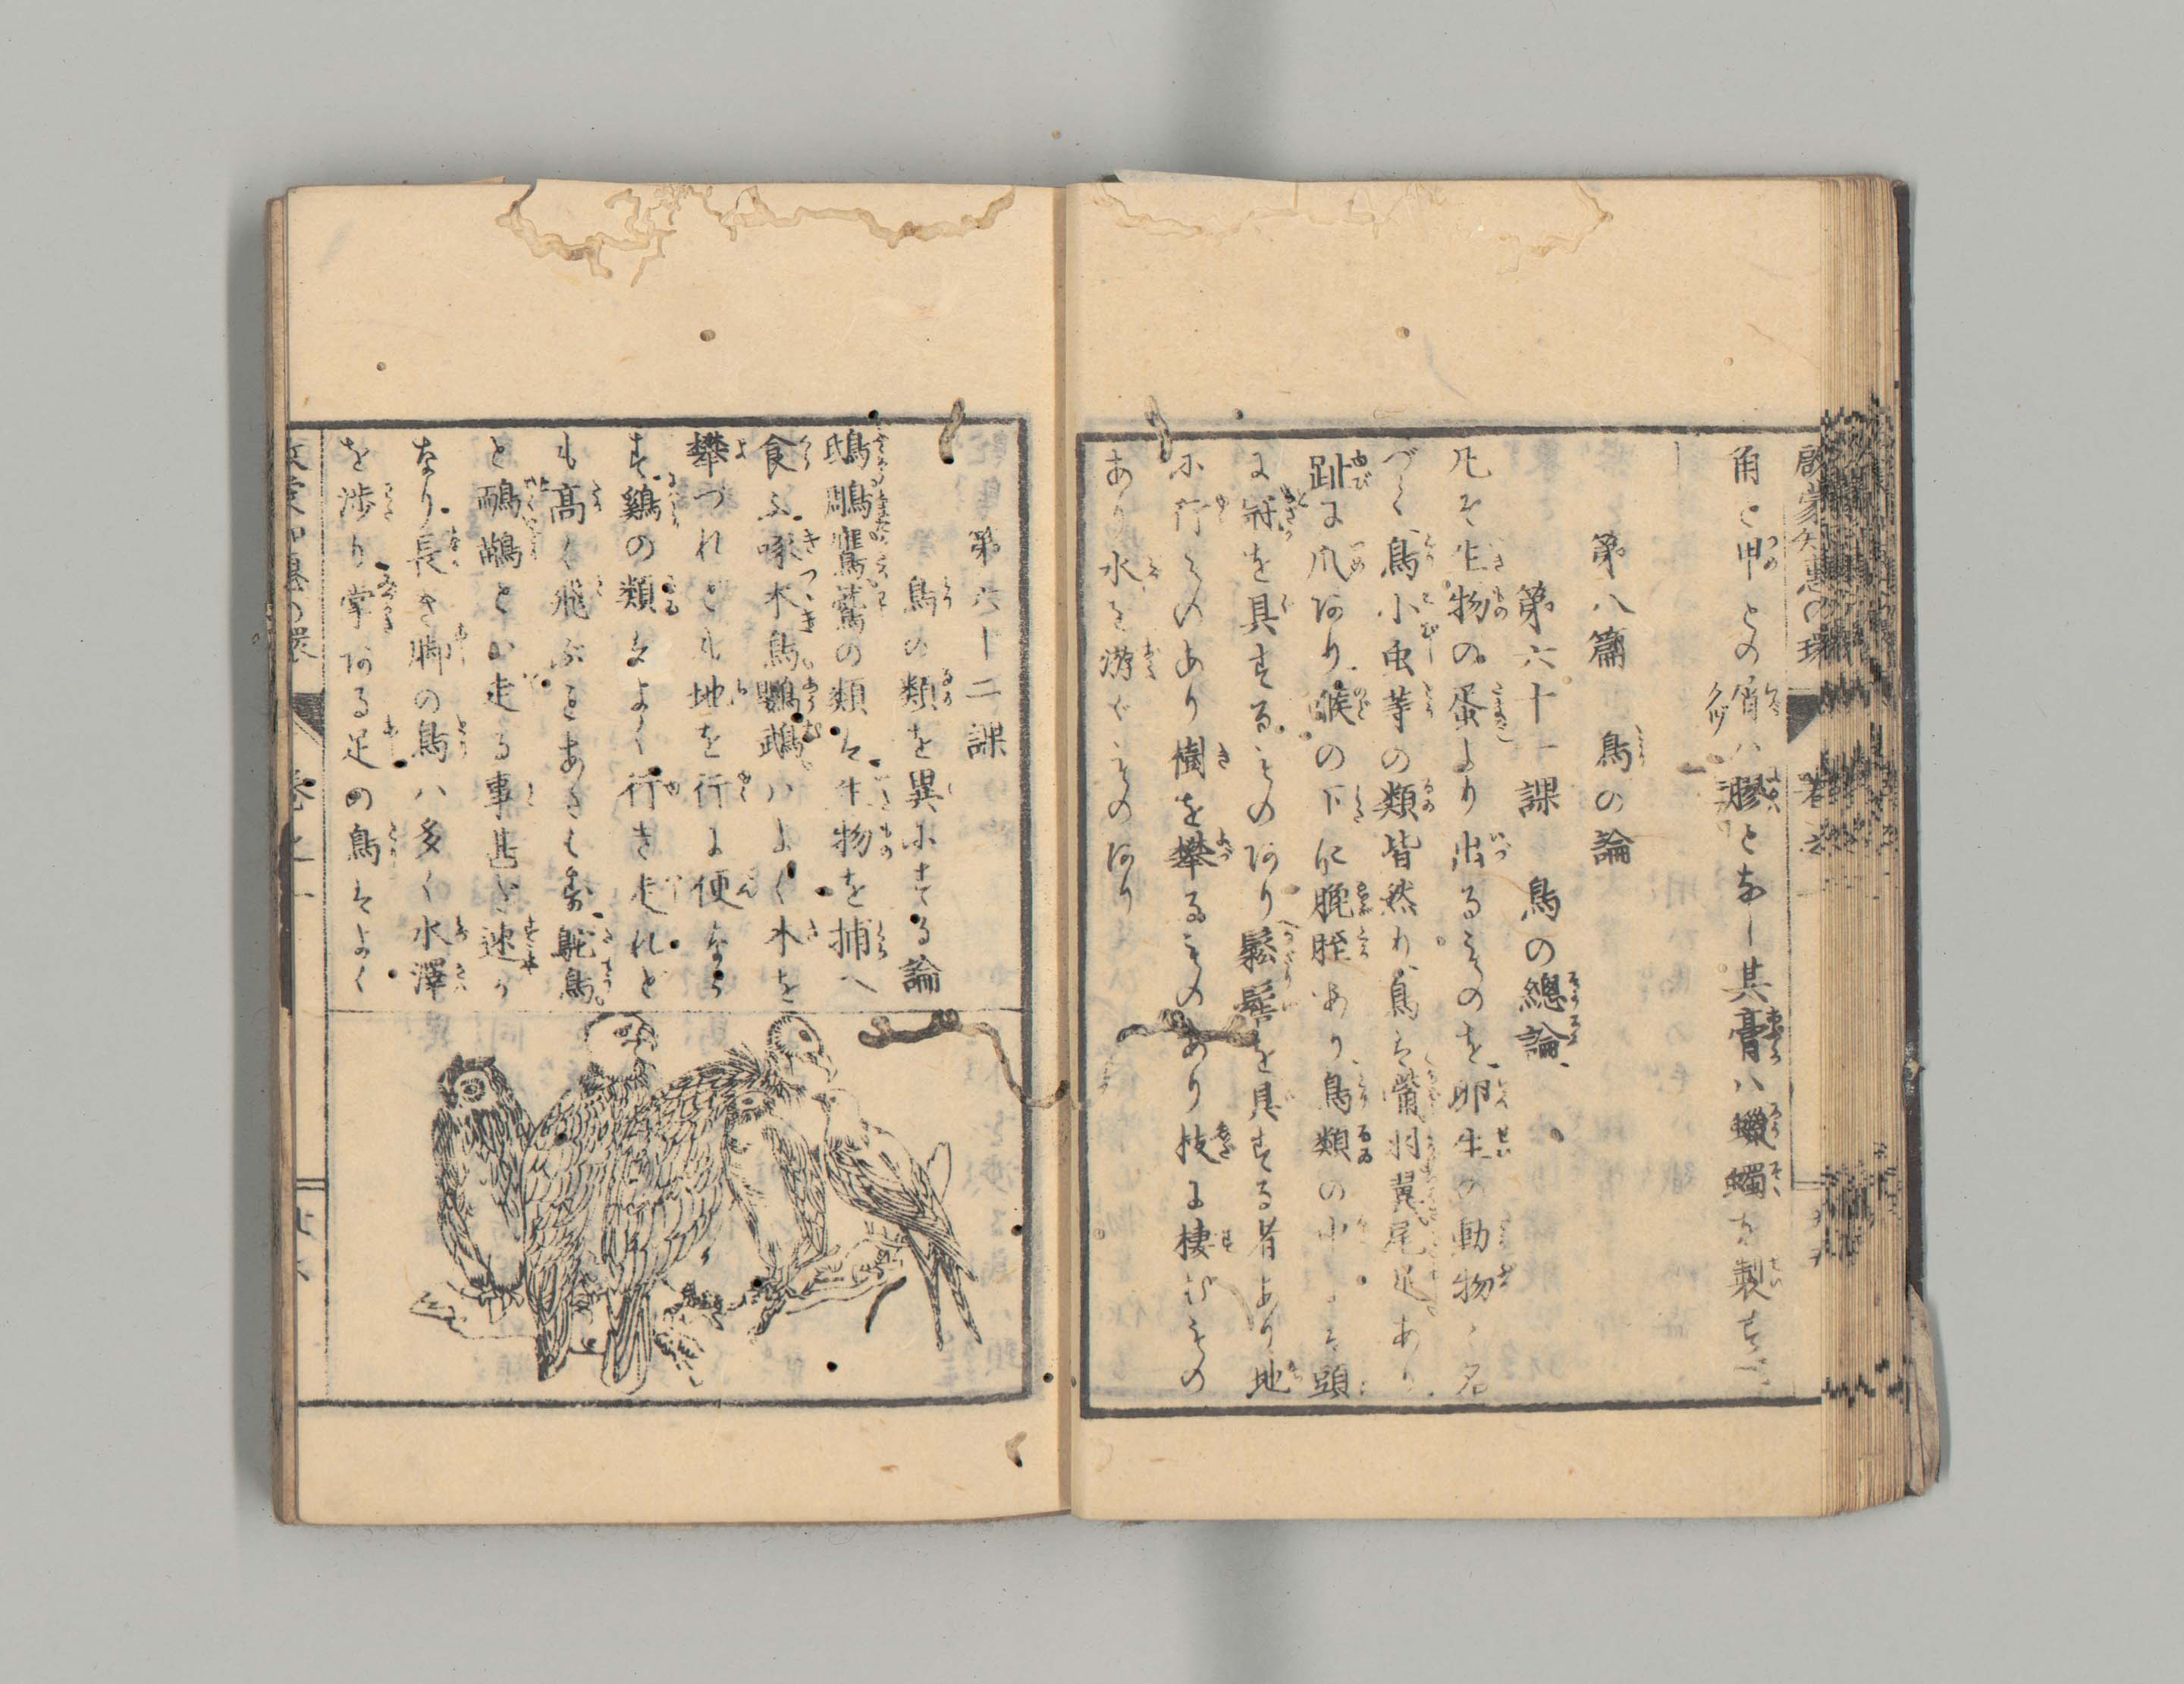 啟蒙知惠の環
角と甲との屑ハ膠となし其膏ハ蠟蠋を製すべ
し
第八篇　鳥の論
第六十一課　鳥の總論
凡そ生物の蛋より出るものを卵生の動物と名
づく鳥小虫等の類皆然り鳥は觜羽翼尾足あり
趾に爪あり喉の下に脆胵あり鳥類の中には頭
に冠を具するものあり鬆髦を具する者あり地
に行くものあり樹を攀るものあり枝に棲むもの
あり水を游ぐものあり
第六十二課
鳥の類を異にする論
鴟鵰鷹鷲の類は生物を捕へ
食ふ啄木鳥鸚鵡ハよく木を
攀づれども地を行に便なら
ず鷄の類はよく行き走れど
も高く飛ぶことあたはず鴕鳥
と鴯鶓とハ走る事甚だ速か
なり長き脚の鳥ハ多く水澤
を渉り掌ある足の鳥はよく